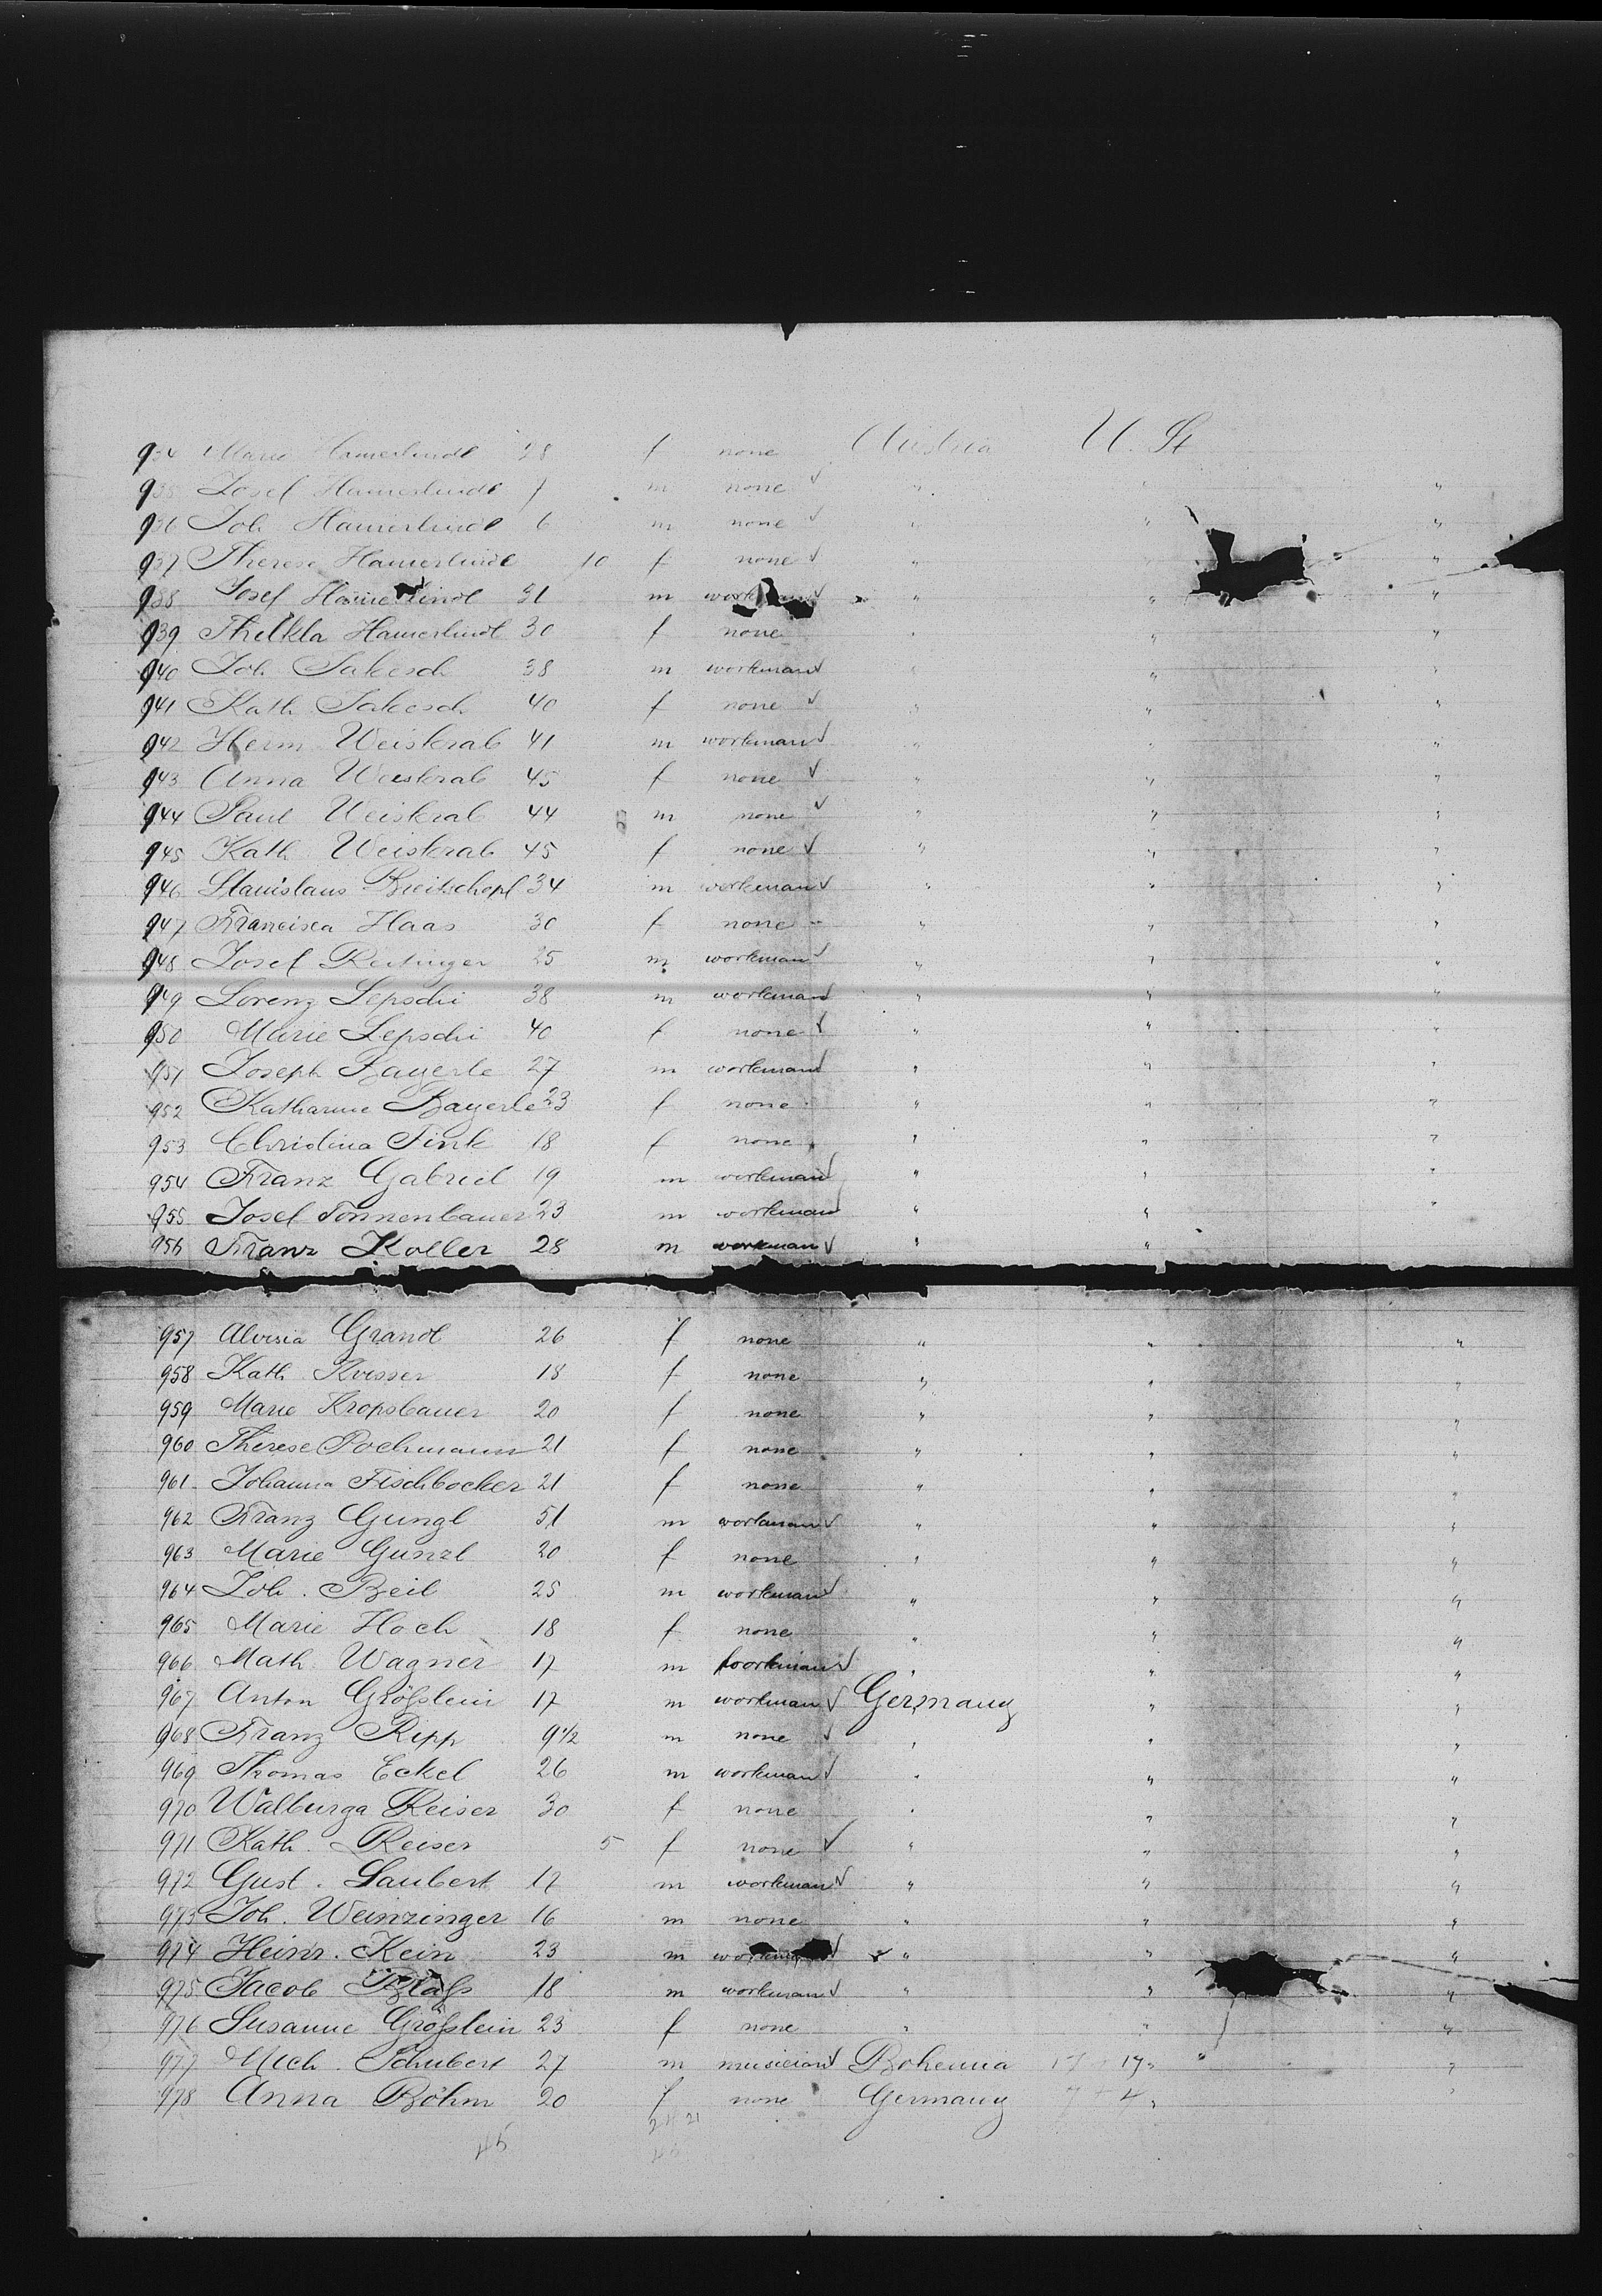 934 Marie Hamerlindl 28 f none Austria U. St
935 Josef Hamerlindl 7 m none " " "
936 Joh Hamerlindl 6 m none " " "
937 Therese Hamerlindl 10 f none " " "
938 Josef Hamerlindl 31 m workman " " "
939 Thelkla Hamerlindl 30 f none " " "
940 Joh. Sakesch 38 m workman " " "
941 Kath Sakesch 40 f none " " "
942 Herm Weiskrab 41 m workman " " "
943 Anna Weiskrab 45 f none " " "
944 Paul Weiskrab 44 m none " " "
945 Kath. Weiskrab 45 f none " " "
946 Stanislaus Breitschopf 34 m workman " " "
947 Francisca Haas 30 f none " " "
948 Josef Reitinger 25 m workman " " "
949 Lorenz Lepschi 38 m workman " " "
950 Marie Lepschi 40 f none " " "
951 Joseph Bayerle 27 m workman " " "
952 Katharine Bayerle 23 f none " " "
953 Christina Fink 18 f none " " "
954 Franz Gabriel 19 m workman " " "
955 Josef Sonnenbauer 23 m workman " " "
956 Franz Koller 28 m workman " "
957 Aloisia Grandl 26 f none " " "
958 Kath. 18 f none " " "
959 Marie Kropsbauer 20 f none " " "
960 Therese Pochmann 21 f none " " "
961 Johanna Fischbocker 21 f none " " "
962 Franz Gungl 51 m workman " " "
963 Marie Gunzl 20 f none " " "
964 Joh. Beil 25 m workman " " "
965 Marie Hoch 18 f none " " "
966 Math. Wagner 17 m workman " " "
967 Anton Größlein 17 m workman Germany " "
968 Franz Ripp 9 1/2 m none " " "
969 Thomas Eckel 26 m workman " " "
970 Walburga Reiser 30 f none " " "
971 Kath. Reiser 5 f none " " "
972 Gust. Laubert 17 m workman " " "
973 Joh. Weinzinger 16 m none " " "
974 Heinr. Kein 23 m workman " " "
975 Jacob 18 m workman " " "
976 Susanne Größlein 23 f none " " "
977 Mich. Schubert 27 m musician Bohemia 17 19 " "
978 Anna Böhm 20 f none Germany 7 + 4 " "
24 21
45